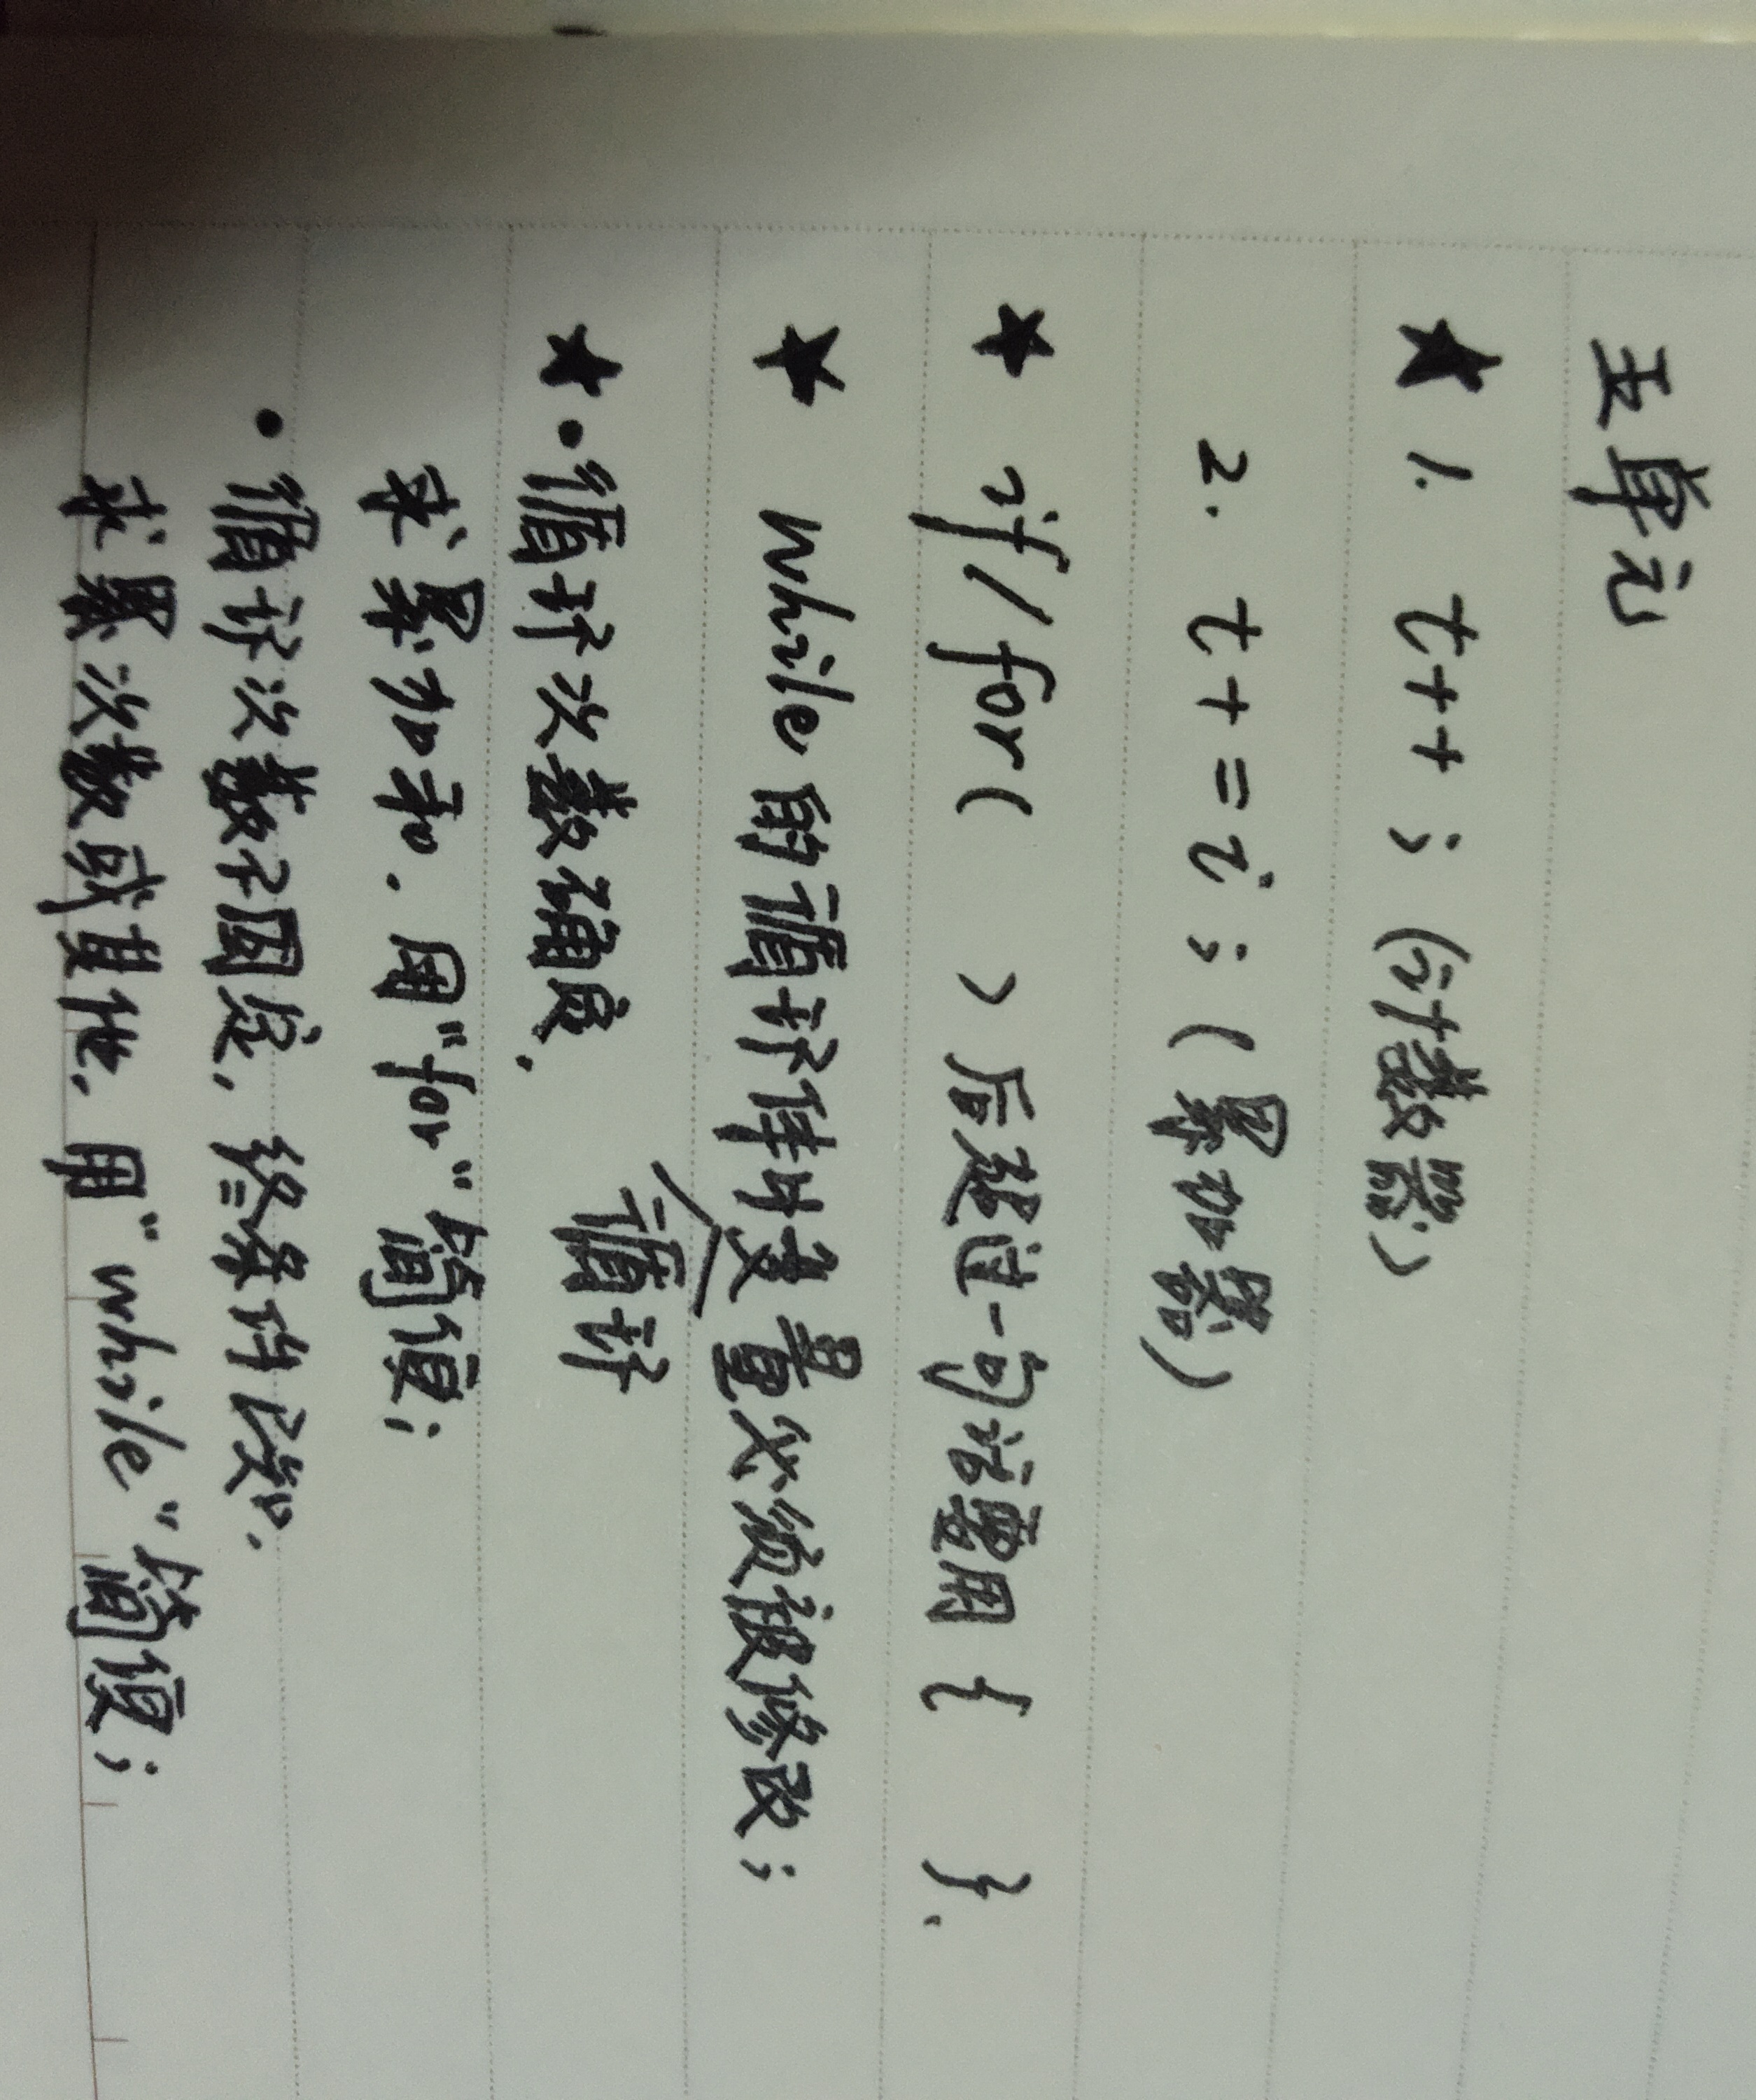 五单元
★ 1. t++; (计数器)
2. t+=i; (累加器)
★ if/for( )后超过一句话要用{ }.
★ while的循环体中变量必须被修改;
循环
★·循环次数确定,
求累加和,用"for"简便;
·循环次数不固定,终条件已知,
求累次数或其他,用"while"简便;